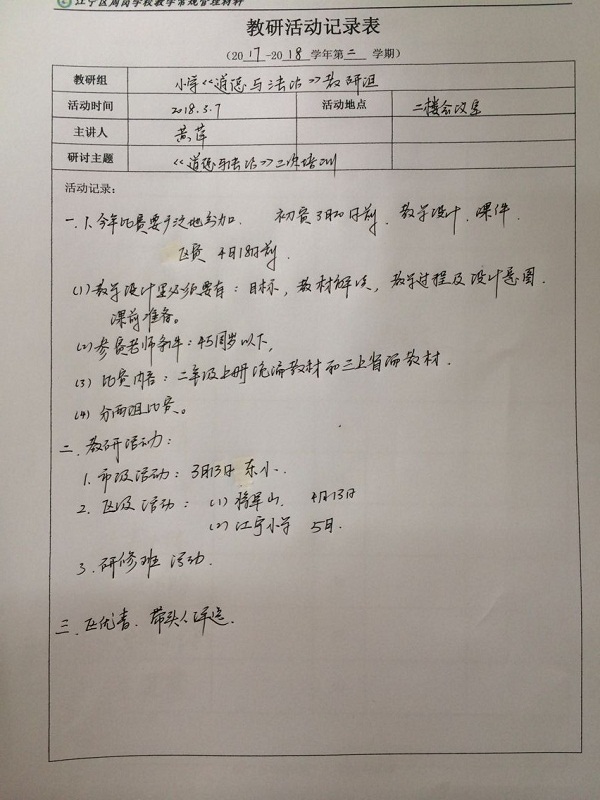 江宁区周岗学校教学常规管理材料
教研活动记录表
（2017-2018学年第二 学期）
教研组 小学《道德与法治》教研组
活动时间 2018.3.7 活动地点 二楼会议室
主讲人 黄萍
研讨主题 《道德与法治》二次培训
活动记录：
一.1.今年比赛要多次地参加. 初赛3月20日前. 教学设计. 课件.
区赛 4月18日前.
(1)教学设计里必须要有：目标，教材解读，教学过程及设计意图.
课前准备。
(2)参赛老师条件：45周岁以下,
(3) 比赛内容：二年级上册统编教材和三上省编教材.
(4) 分两组比赛。
二.教研活动：
1.市级活动：3月13日 东小.
2.区级活动：(1)将军山. 4月13日
(2)江宁小学 5月.
3.研修班 活动.
三.区优青. 带头人评选.